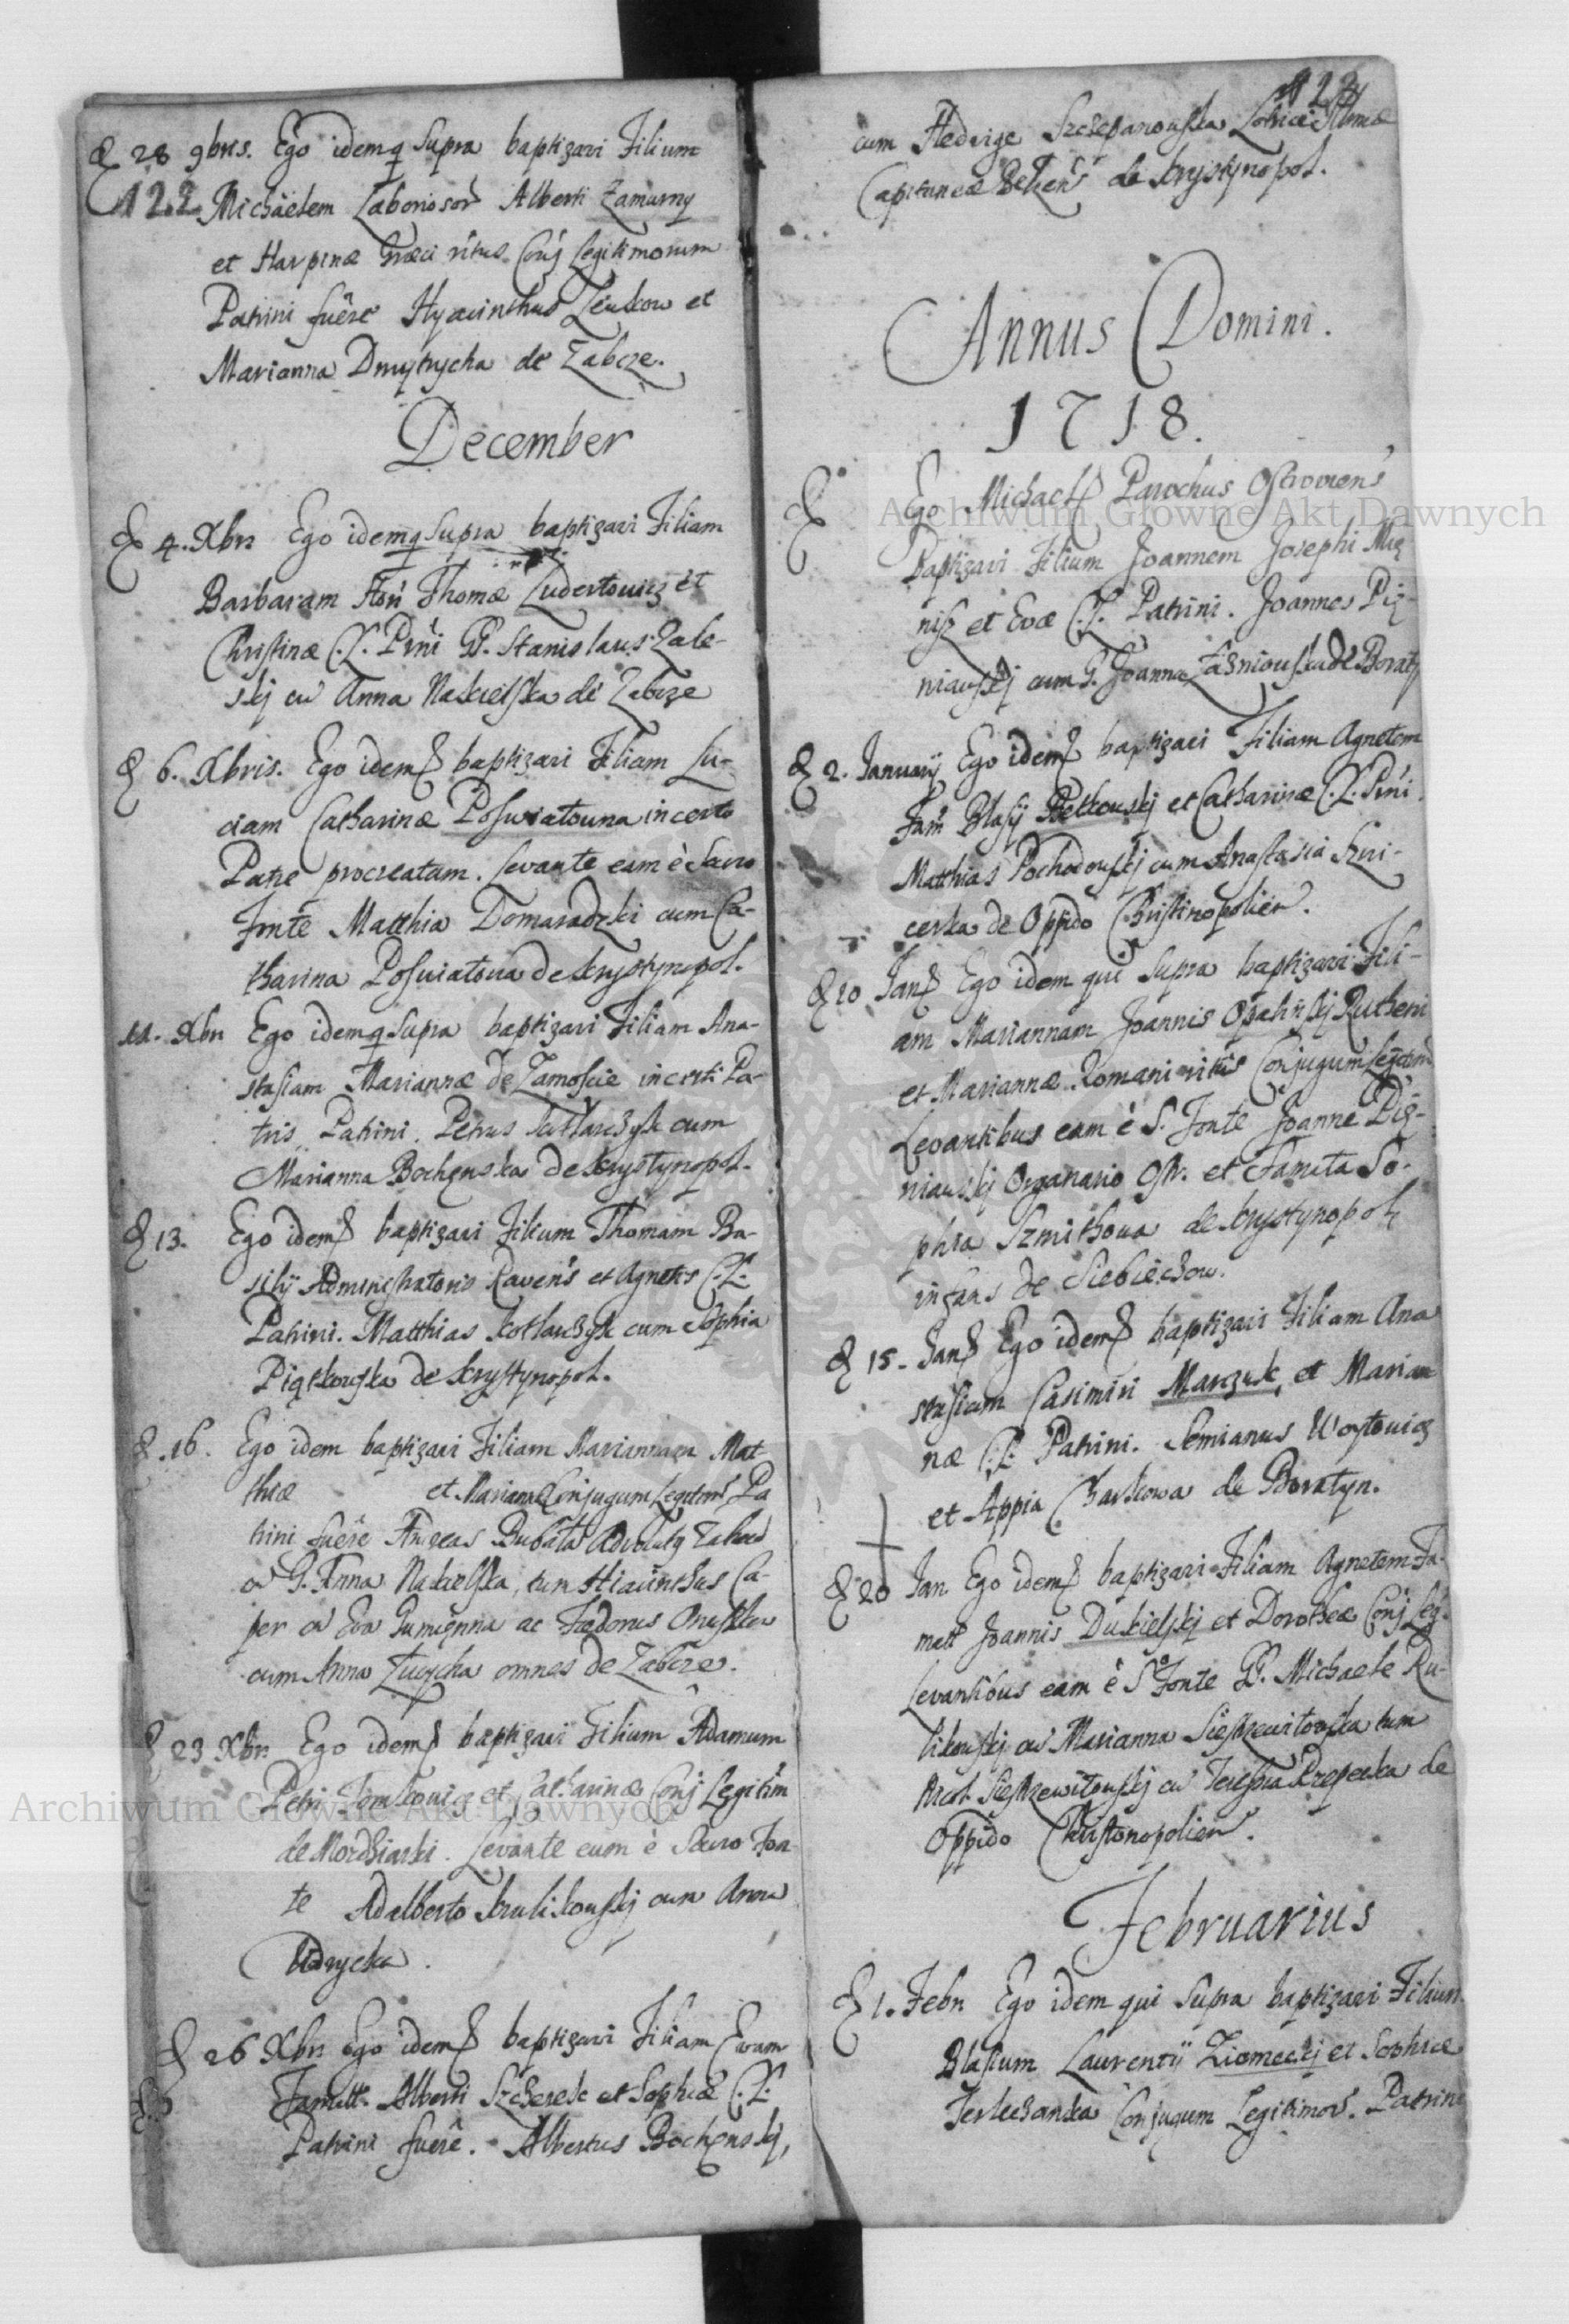 28 9bris. Ego idemq Supra baptizavi Filium
122 Michaëlem Laboriosor Alberti Zamurny
et Harpinæ Græci ritus Conj Legitimorum
Patrini fuêre Hyacinthus Zeukow et
Marianna Dmytrycha de Zabcze.
December
4. Xbri Ego idemq Supra baptizavi Filiam
Barbaram Thomæ Ludertowicz et
Christinæ C.L. Prni GG. Stanislaus Zale-
skj cu Anna Nakielska de Zabcze
6. Xbris. Ego idem baptizavi Filiam Lu-
ciam Catharinæ Poswiatouna incerto
Patre procreatam. Levante eam è Sacro
Fonte Matthia Domaradzki cum Ca-
tharina Poswiatowa de Krystynopol.
11. Xbri Ego idemq Supra baptizavi Filiam Ana-
stasiam Mariannæ de Zamoscie incerti Pa-
tris Patrini. Petrus Kotlarczyk cum
Marianna Bochenska de Krystynopol.
13. Ego idem baptizavi Filium Thomam Ba-
silij Administratoris Ravens et Agnetis C.L.
Patrini. Matthias Kotlarczyk cum Sophia
Piątkowska de Krystynopol.
16. Ego idem baptizavi Filiam Mariannam Mat-
thiæ et Mariannæ Conjugum Legitim Pa
trini fuêre Andreas Bubala
G. Anna Nakielska, tum Hiacinthus Ca-
per cu Eva Gumienna ac Fedorus Oruszkow
cum Anna Zwycha omnes de Zabcze.
23 Xbri Ego idem baptizavi Filium Adamum
Petri Tomkowicz et Catharinæ Conj Legitim
de Mordziarki. Levante eum è Sacro Fon-
te Adalberto Krulikowskj cum Anna
Udrycka.
26 Xbri Ego idem baptizavi Filiam Evam
Famatt. Alberti Szcherek et Sophiæ C.L.
Patrini fuêre. Albertus Bochenskj,
123
cum Hedvige Szczepanowska
Capitaneæ Belzens de Krystynopol.
Annus Domini.
1718.
Ego Michael Parochus Ostroviens
Baptizavi Filium Joannem Josephi
et Evæ C.L. Patrini. Joannes Pig-
niawskj cum G. Joanna Zasniouska de Boraty
2. Januarij Ego idem baptizavi Filiam Agnetem
Fam Blasij Petkouskj et Catharinæ C.L. Prni
Matthias Pochodouskj cum Anastasia Szni-
cerka de Oppido Christinopolien.
10 Jan Ego idem qui Supra baptizavi Fili-
am Mariannam Joannis Opalinskj Rutheni
et Mariannæ Romani ritus Conjugum Legitim
Levantibus eam è S. Fonte Joanne Pig-
niauskj Organario Ostr. et Famata So-
phia Szmithowa de Krystynopol
infans de Siebieczow.
15. Jan Ego idem baptizavi Filiam Ana
stasiam Casimiri Marczuk et Marian
næ C.L. Patrini. Semianus Woytowicz
et Appia Charkowa de Boratyn.
20 Jan Ego idem baptizavi Filiam Agnetem Fa-
matt Joannis Dukielskj et Dorotheæ Conj Leg.
Levantibus eam è S. Fonte GG. Michaele Ru-
likouskj cu Marianna Siestrzewitowska tum
Nicol Siestrzewitouskj cu Teressia Przepecka de
Oppido Christonopolien.
Februarius
1. Febr Ego idem qui Supra baptizavi Filium
Blasium Laurentij Ziomeckj et Sophiæ
Terleczanka Conjugum Legitimor. Patrini
Archiwum Główne Akt Dawnych
Archiwum Główne Akt Dawnych